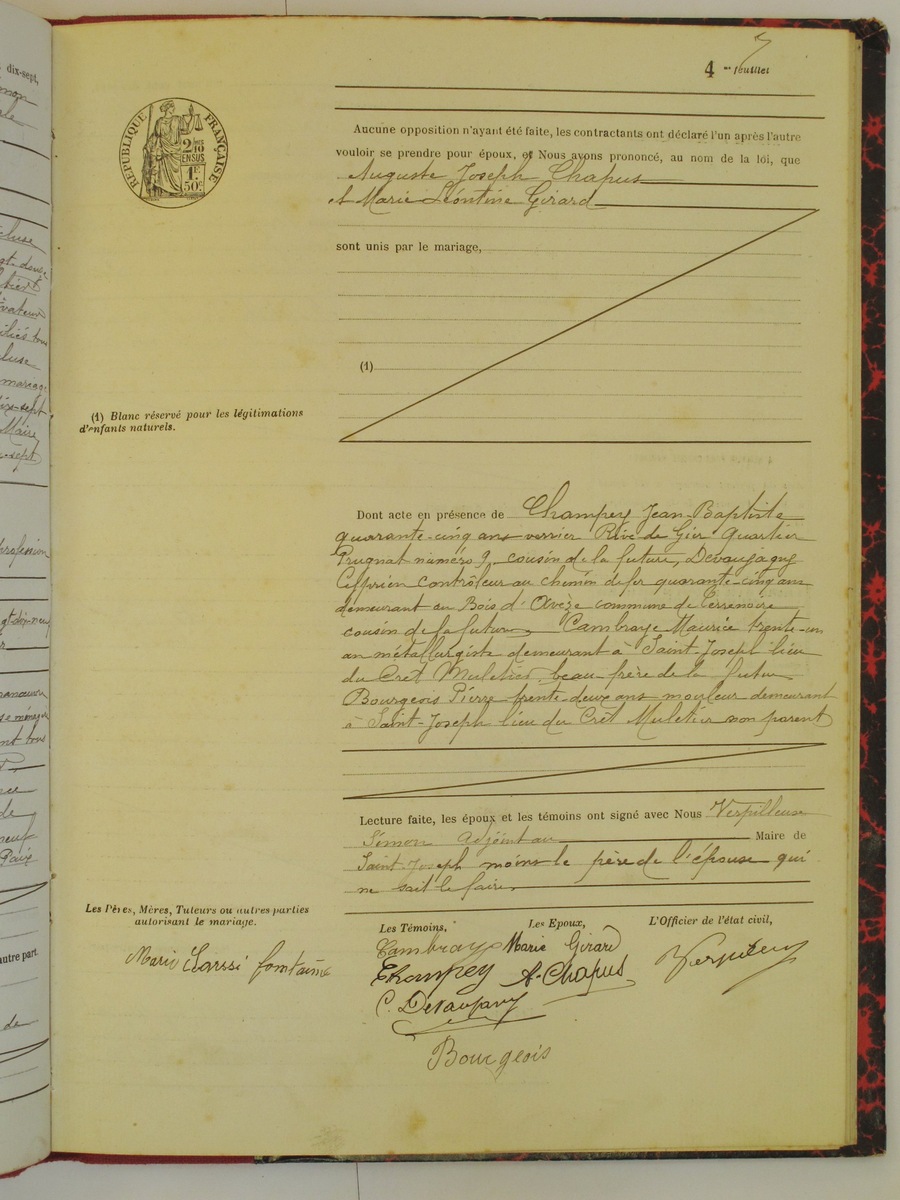 dix-sept,
7
4 me feuillet
RÉPUBLIQUE FRANÇAISE
2/10
EN SUS
1F
50c
Aucune opposition n'ayant été faite, les contractants ont déclaré l'un après l'autre
vouloir se prendre pour époux, et Nous avons prononcé, au nom de la loi, que
Auguste Joseph Chapus
et Marie Léontine Girard
sont unis par le mariage,
(1)
(1) Blanc réservé pour les légitimations
d'enfants naturels.
Dont acte en présence de Champey Jean-Baptiste
quarante-cinq ans verrier Rive de Gier quartier
Prugnat numéro 9, cousin de la future, Devaujany
Cyprien contrôleur au chemin de fer quarante-cinq ans
demeurant au Bois d'Avèze commune de Terrenoire
cousin de la future Cambraye Maurice trente-un
an métallurgiste demeurant à Saint-Joseph lieu
du Crêt Muletier beau-frère de la future
Bourgeois Pierre trente-deux ans mouleur demeurant
à Saint-Joseph lieu du Crêt Muletier non parent
Lecture faite, les époux et les témoins ont signé avec Nous Verpilleux
Simon Adjoint au Maire de
Saint-Joseph moins le père de l'épouse qui
ne sait le faire
Les Pères, Mères, Tuteurs ou autres parties
autorisant le mariage.
Les Témoins,
Les Epoux,
L'Officier de l'état civil,
Marie fontaine
Cambraye Marie Girard
Champey A. Chapus
Verpilleux
C. Devaujany
Bourgeois